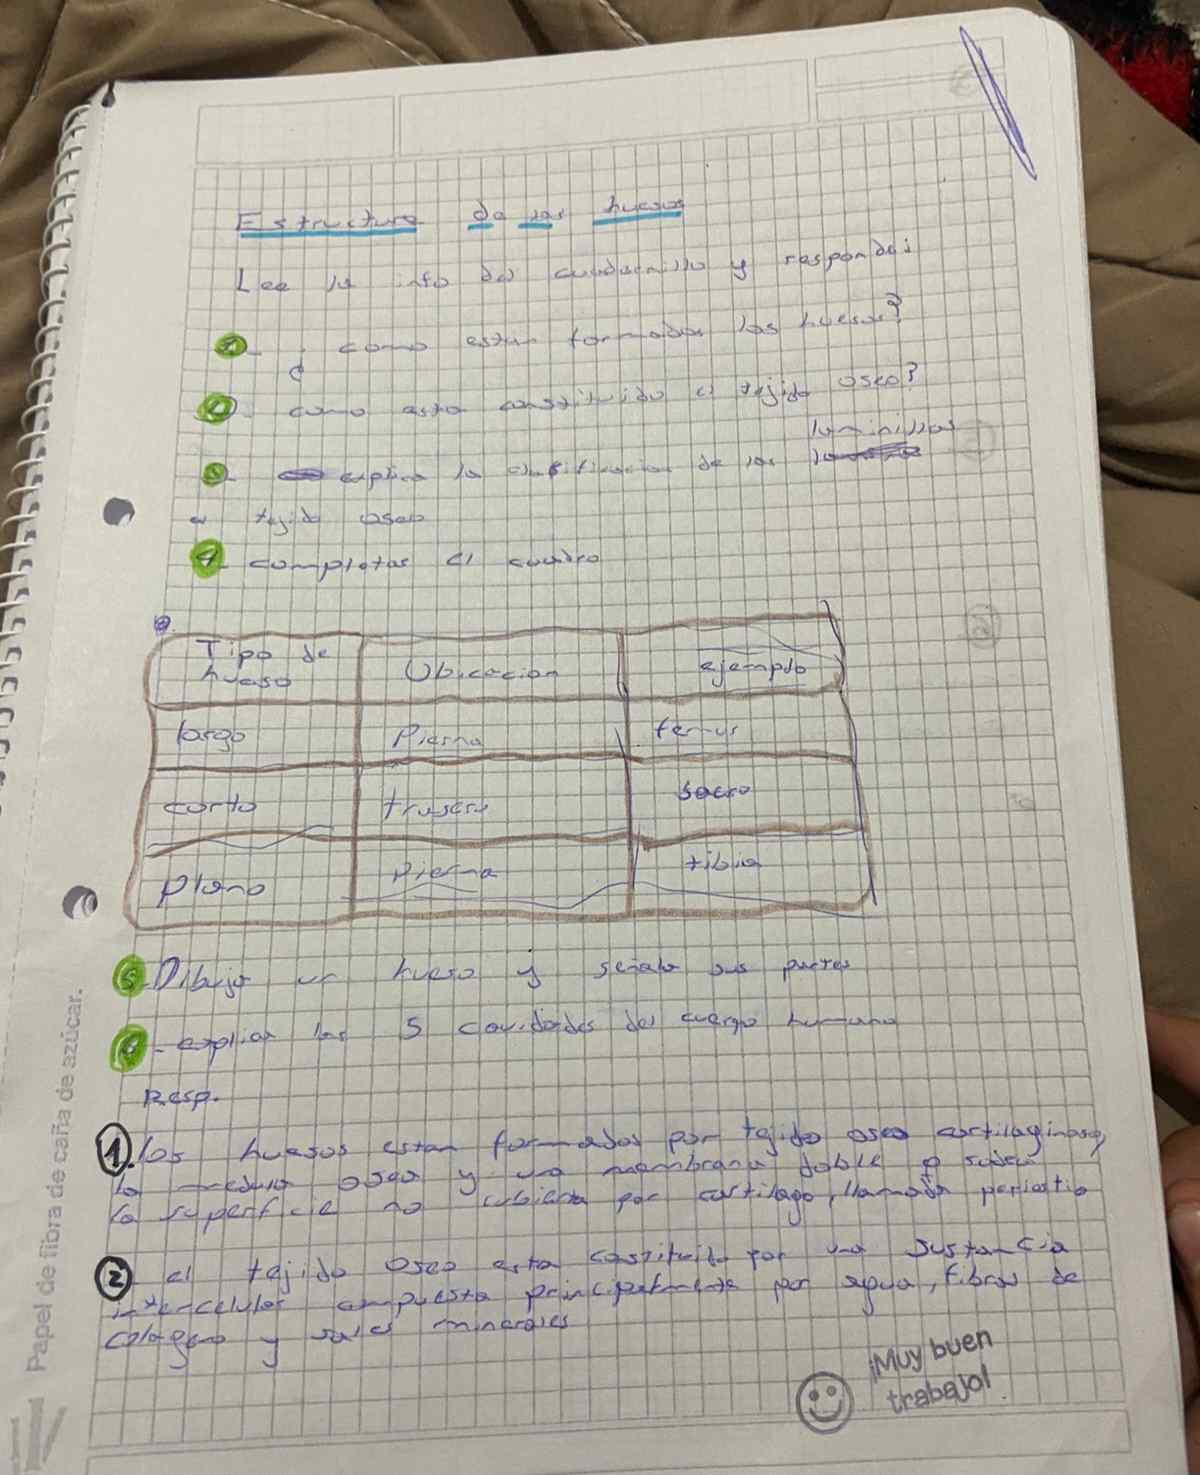 Estructura de los huesos
Lee la info del cuadernillo y responde:
1- ¿como estan formados los huesos?
2- como esta constituido el tejido oseo?
laminillas
3- explica la clasificacion de las
tejido oseo
4- completar el cuadro
Tipo de hueso Ubicacion ejemplo
largo Pierna femur
corto trasero sacro
plano Pierna tibia
5- Dibuja un hueso y señala sus partes
6- explicar las 5 cavidades del cuerpo humano
Resp.
1. los huesos estan formados por tejido oseo cartilaginoso,
la medula osea y una membrana doble q rodea
la superficie no cubierta por cartilago, llamada periostio
2 el tejido oseo esta constituido por una sustancia
intercelular compuesta principalmente por agua, fibras de
colageno y sales minerales
¡Muy buen
trabajo!
Papel de fibra de caña de azúcar.